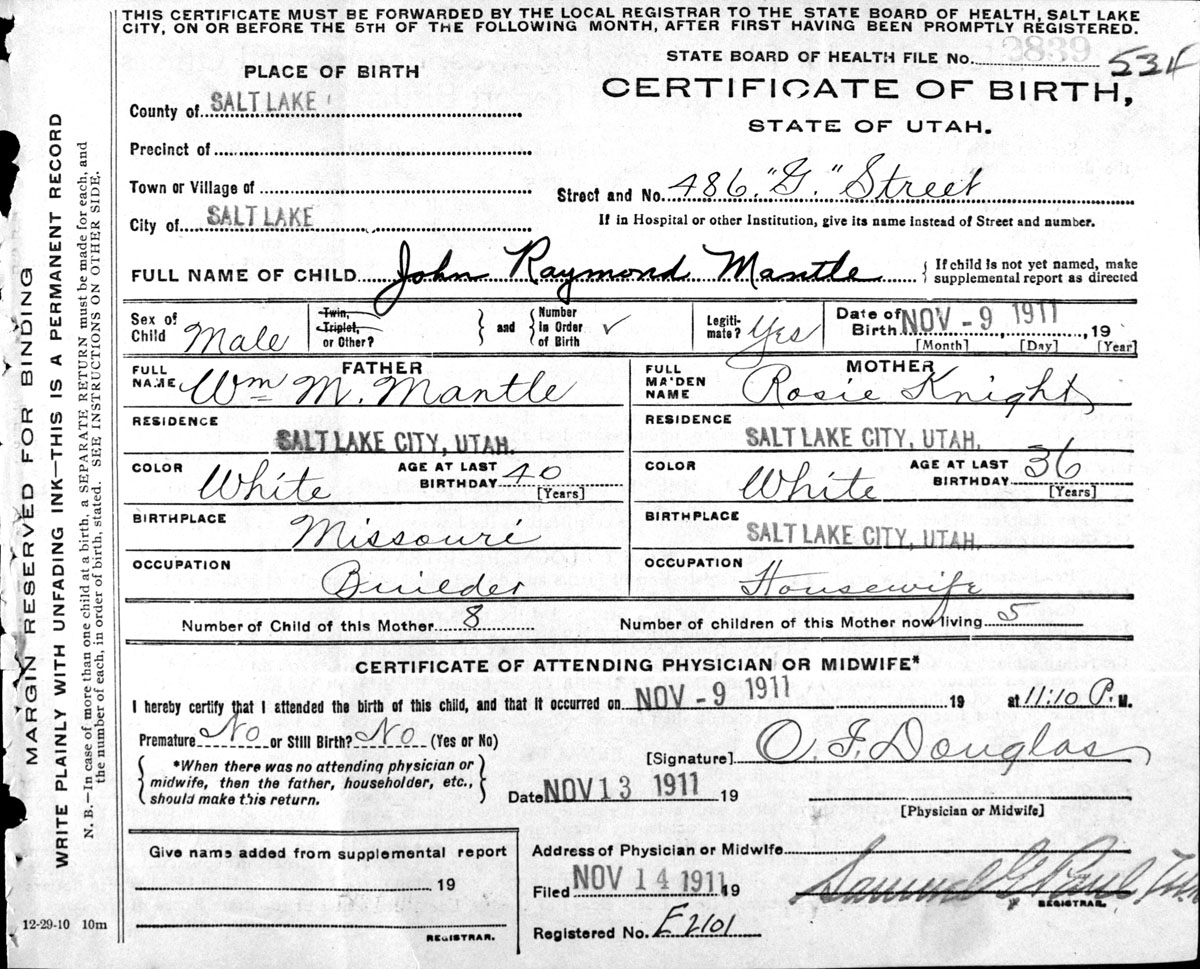 THIS CERTIFICATE MUST BE FORWARDED BY THE LOCAL REGISTRAR TO THE STATE BOARD OF HEALTH, SALT LAKE
CITY, ON OR BEFORE THE 5TH OF THE FOLLOWING MONTH, AFTER FIRST HAVING BEEN PROMPTLY REGISTERED.
STATE BOARD OF HEALTH FILE No. 534
PLACE OF BIRTH
CERTIFICATE OF BIRTH,
STATE OF UTAH.
County of SALT LAKE
Precinct of
Town or Village of
Street and No. 486 "G." Street
City of SALT LAKE
If in Hospital or other Institution, give its name instead of Street and number.
FULL NAME OF CHILD John Raymond Mantle { If child is not yet named, make
supplemental report as directed
Sex of Child Male
Twin, Triplet, or Other?
and
Number in Order of Birth ✓
Legitimate? Yes
Date of Birth NOV - 9 1911, 19
[Month] [Day] [Year]
FATHER
FULL NAME Wm M. Mantle
MOTHER
FULL MAIDEN NAME Rosie Knight
RESIDENCE SALT LAKE CITY, UTAH.
RESIDENCE SALT LAKE CITY, UTAH.
COLOR White AGE AT LAST BIRTHDAY 40
[Years]
COLOR White AGE AT LAST BIRTHDAY 36
[Years]
BIRTHPLACE Missoure
BIRTHPLACE SALT LAKE CITY, UTAH.
OCCUPATION Builder
OCCUPATION Housewife
Number of Child of this Mother 8
Number of children of this Mother now living 5
CERTIFICATE OF ATTENDING PHYSICIAN OR MIDWIFE*
I hereby certify that I attended the birth of this child, and that it occurred on NOV - 9 1911 19 at 11:10 P. M.
Premature No or Still Birth? No (Yes or No)
[Signature] O. F. Douglas
*When there was no attending physician or
midwife, then the father, householder, etc.,
should make this return.
Date NOV 13 1911 19
[Physician or Midwife]
Give name added from supplemental report
19
REGISTRAR.
Address of Physician or Midwife
Filed NOV 14 1911 19
Samuel G. Paul
REGISTRAR.
Registered No. E2101
MARGIN RESERVED FOR BINDING
WRITE PLAINLY WITH UNFADING INK—THIS IS A PERMANENT RECORD
N. B.—In case of more than one child at a birth, a SEPARATE RETURN must be made for each, and
the number of each, in order of birth, stated. SEE INSTRUCTIONS ON OTHER SIDE.
12-29-10 10m